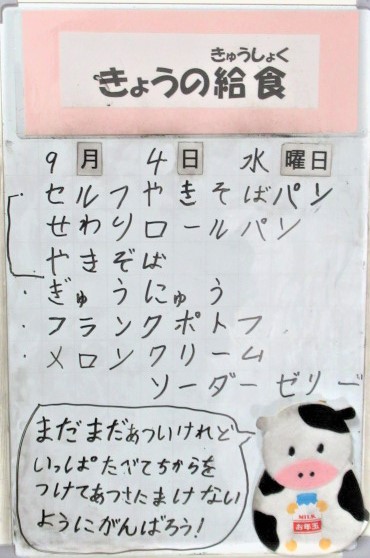 きゅうしょく
きょうの給食
9月 4日 水曜日
セルフやきそばパン
せわりロールパン
やきそば
・ぎゅうにゅう
・フランクポトフ
・メロンクリーム
ソーダーゼリー
まだまだあついけれど
いっぱたべてちからを
つけてあつさたまけない
ようにがんばろう!
MILK
お年玉